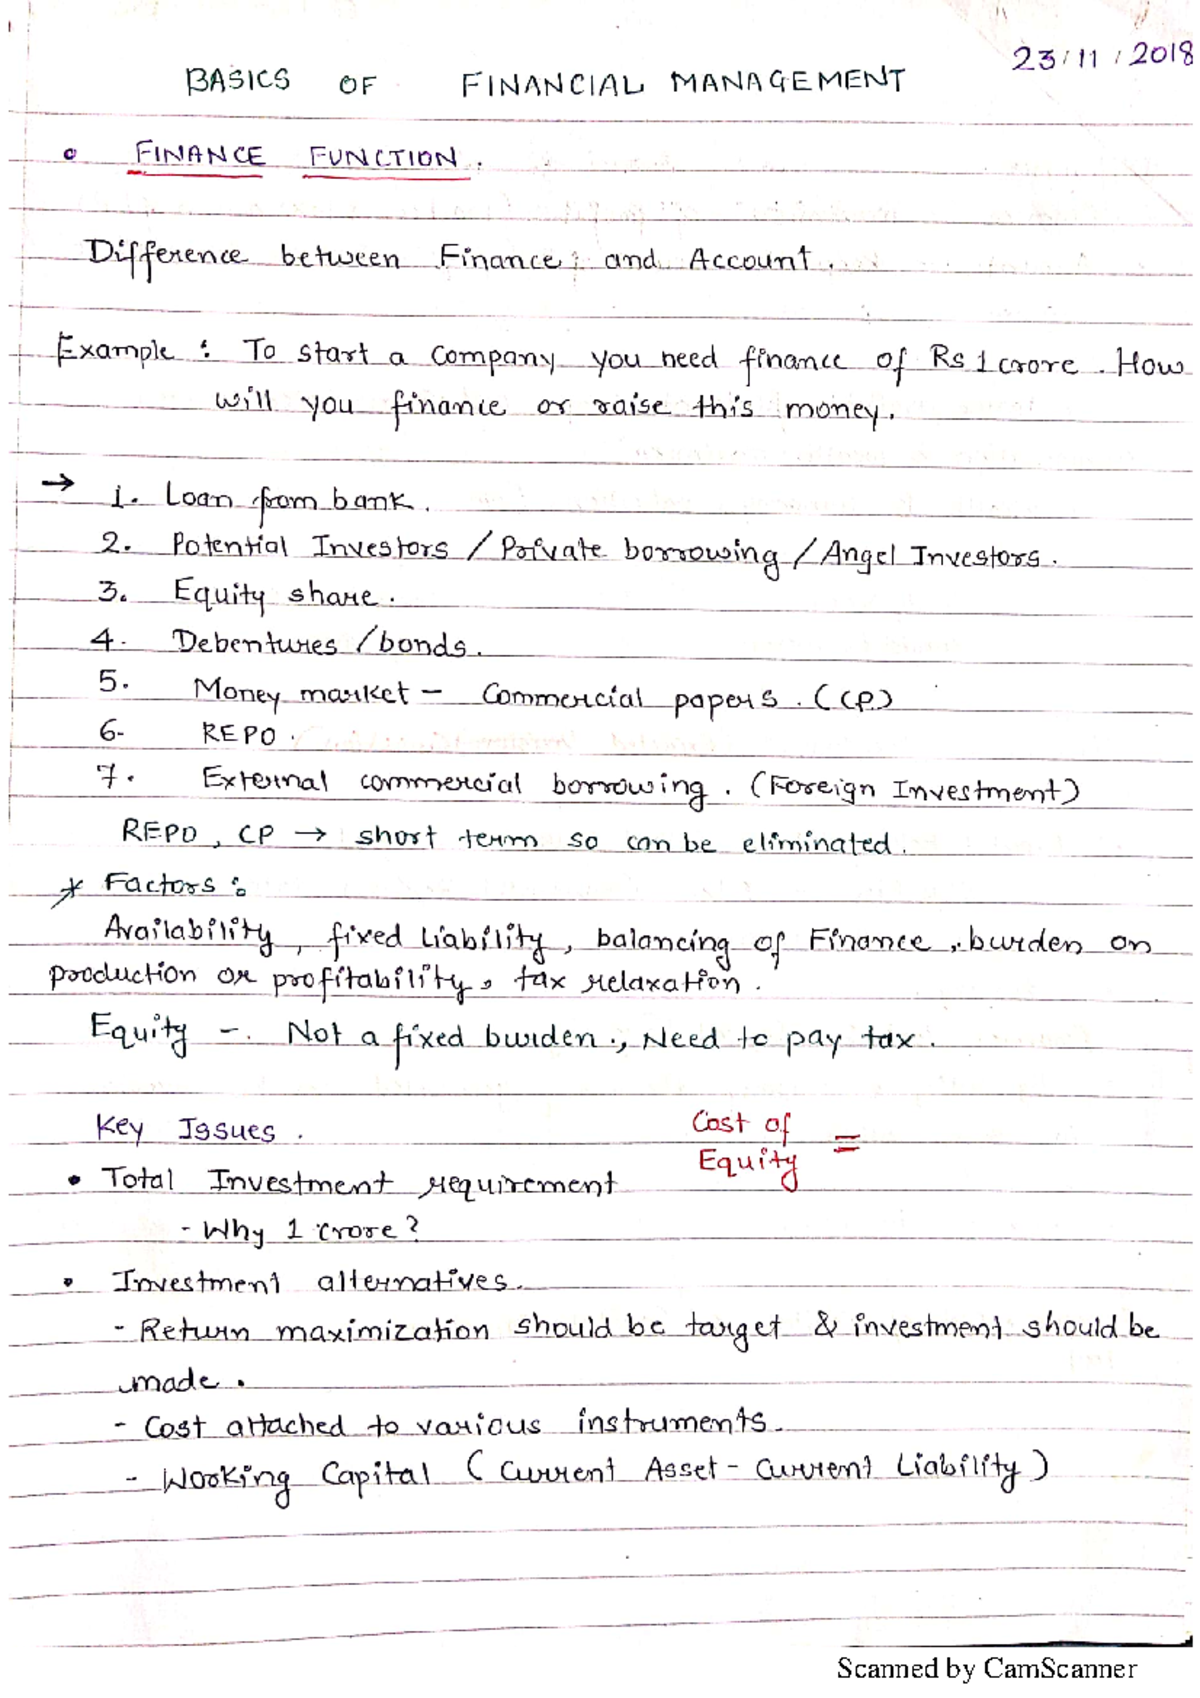 23/11/2018
BASICS OF FINANCIAL MANAGEMENT
• FINANCE FUNCTION.
Difference between Finance; and Account.
Example : To start a company you need finance of Rs 1 crore. How
will you finance or raise this money.
→ 1. Loan from bank.
2. Potential Investors / Private borrowing / Angel Investors.
3. Equity share.
4. Debentures / bonds.
5. Money market – Commercial papers. (CP)
6- REPO.
7. External commercial borrowing. (Foreign Investment)
REPO, CP → short term so can be eliminated.
* Factors :
Availability, fixed Liability, balancing of Finance, burden on
production or profitability, tax relaxation.
Equity –. Not a fixed burden., Need to pay tax.
Key Issues.
Cost of
Equity =
• Total Investment requirement
- Why 1 crore?
• Investment alternatives.
- Return maximization should be target & investment should be
made.
- Cost attached to various instruments.
- Working Capital (Current Asset - Current Liability)
Scanned by CamScanner